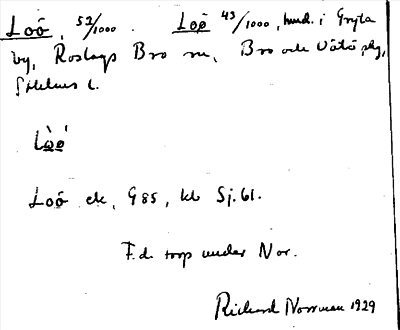 Loö, 52/1000. Loö 43/1000, hmd. i Gryta
by, Roslags Bro sn, Bro och Vätö skg,
Sthlms l.
Lòó
Loö ek, G85, kb Sj.61.
F.d. torp under Nor.
Richard Norrman 1929